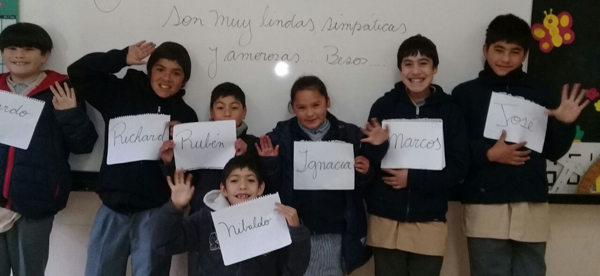 Son muy lindas simpáticas
y amorosas.... Besos....
Richard
Rubén
Ignacia
Marcos
José
Nibaldo